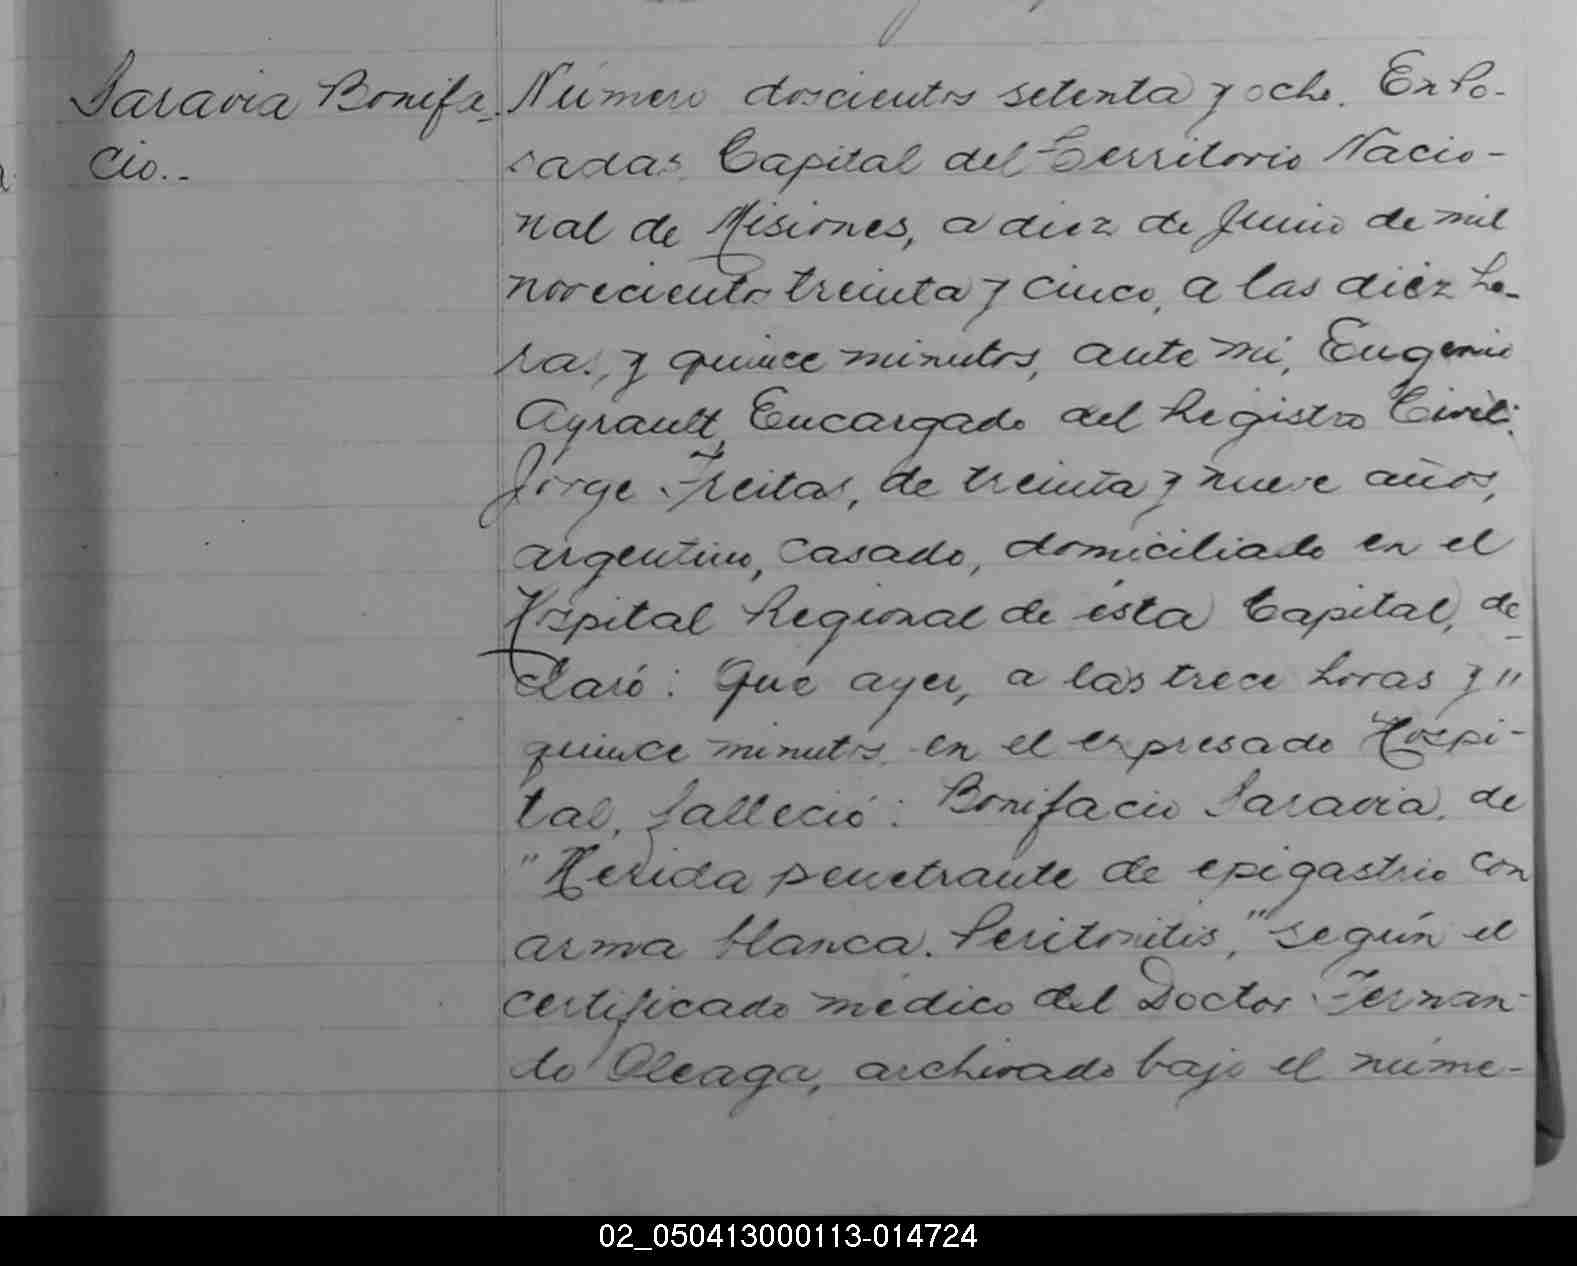 Saravia Bonifa-
cio..
Número doscientos setenta y ocho. En Po-
sadas Capital del Territorio Nacio-
nal de Misiones, a diez de Junio de mil
novecientos treinta y cinco, a las diéz ho-
ras, y quince minutos, ante mi, Eugenio
Ayrault, Encargado del Registro Civil:
Jorge Freitas, de treinta y nueve años,
argentino, casado, domiciliado en el
Hospital Regional de ésta Capital, de-
claró: Que ayer, a las trece horas y "
quince minutos en el expresado Hospi-
tal, falleció: Bonifacio Saravia, de
"Herida penetrante de epigastrio con
arma blanca. Peritonitis," según el
certificado médico del Doctor Fernan-
do Oleaga, archivado bajo el núme-
02_050413000113-014724